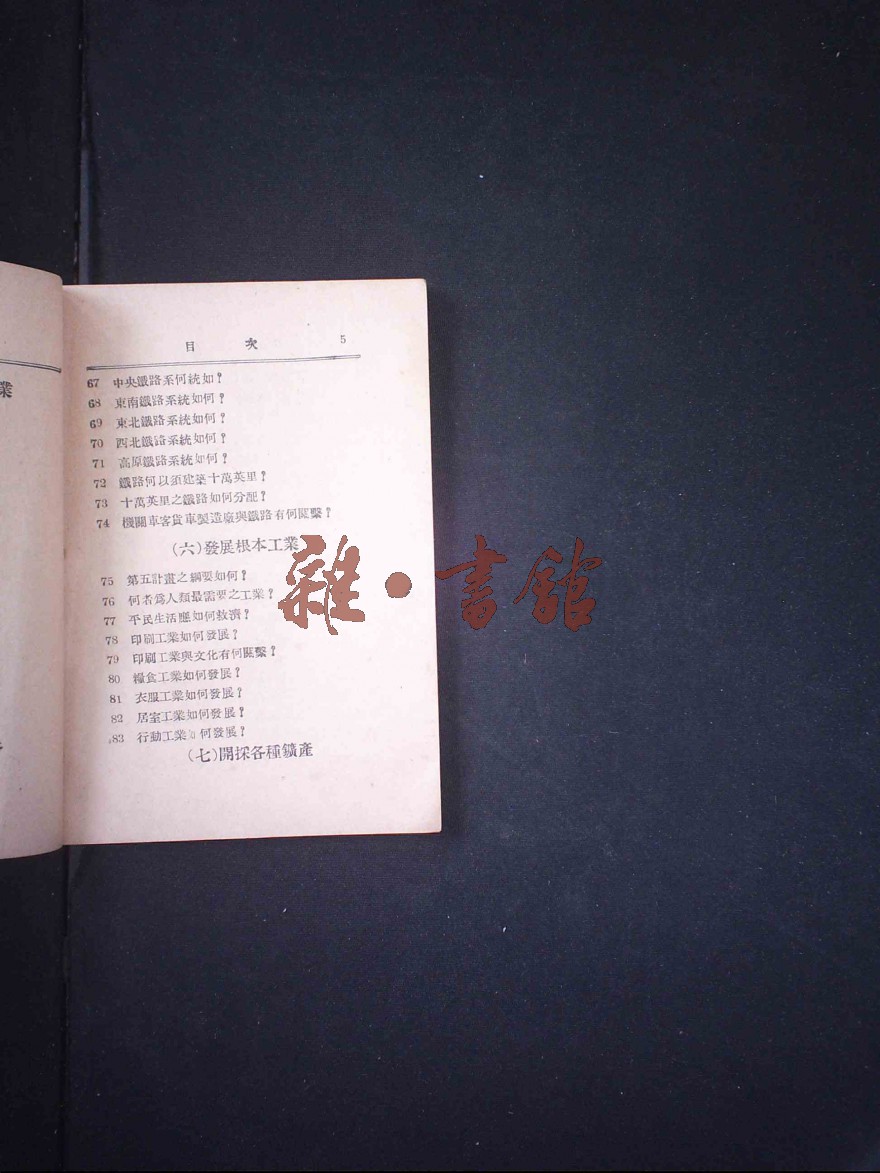 業
目 次 5
67 中央鐵路系何統如？
68 東南鐵路系統如何？
69 東北鐵路系統如何？
70 西北鐵路系統如何？
71 高原鐵路系統如何？
72 鐵路何以須建築十萬英里？
73 十萬英里之鐵路如何分配？
74 機關車客貨車製造廠與鐵路有何關繫？
（六）發展根本工業
75 第五計畫之綱要如何？
76 何者爲人類最需要之工業？
77 平民生活應如何救濟？
78 印刷工業如何發展？
79 印刷工業與文化有何關繫？
80 糧食工業如何發展？
81 衣服工業如何發展？
82 居室工業如何發展？
83 行動工業如何發展？
（七）開採各種鑛產
雜·書館